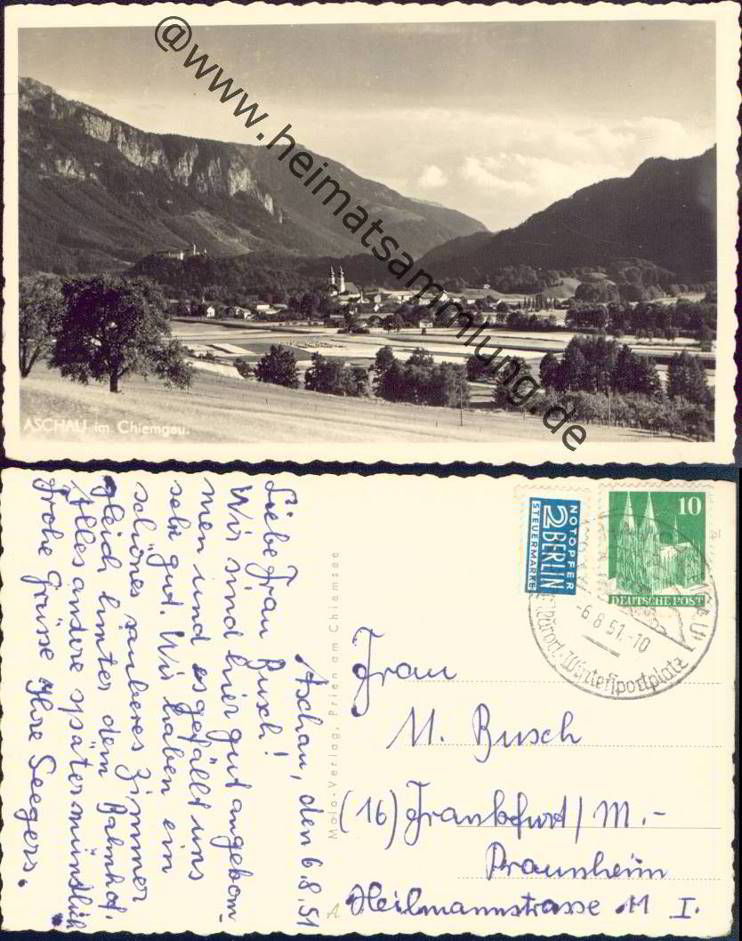 @www.heimatsammlung.de
ASCHAU im Chiemgau.
Aschau, den 6.8.51
Liebe Frau Busch!
Wir sind hier gut angekom-
men und es gefällt uns
sehr gut. Wir haben ein
schönes sauberes Zimmer
gleich hinter dem Bahnhof.
Alles andere später mündlich
Frohe Grüsse Ihre Seegers.
Molo-Verlag, Prien am Chiemsee
NOTOPFER
2 BERLIN
STEUERMARKE
10
DEUTSCHE POST
-6.8.51.-10
Kurort-Wintersportplatz
Frau
M. Busch
(16) Frankfurt/M.-
Praunheim
Heilmannstrasse 11 I.